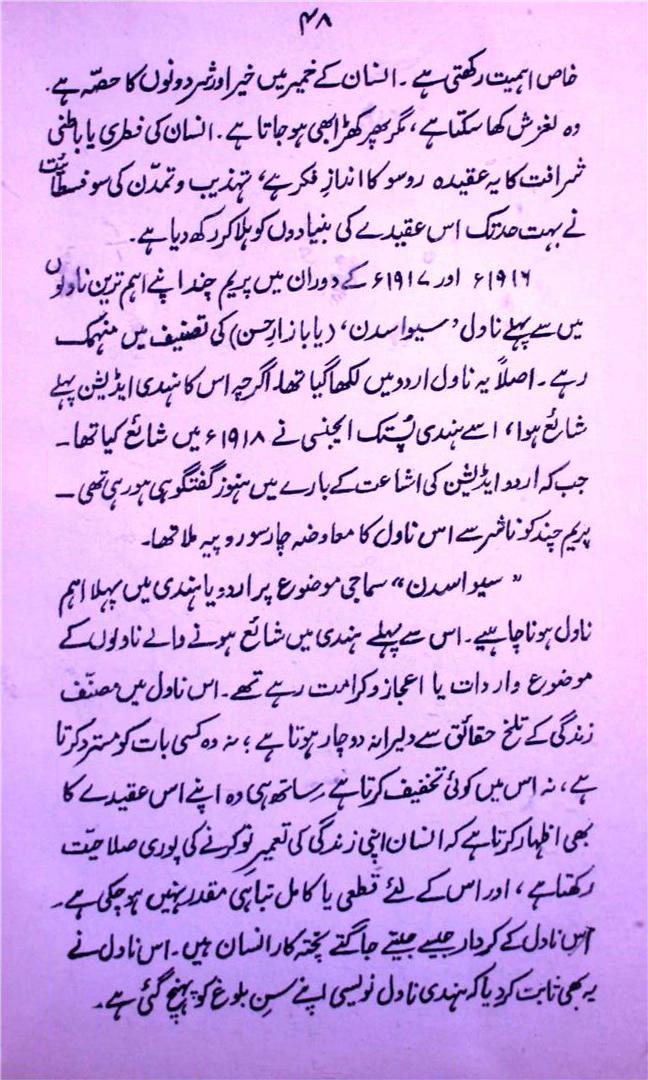 ۴۸
خاص اہمیت رکھتی ہے ۔ انسان کے خمیر میں خیر اور شر دونوں کا حصّہ ہے.
وہ لغزش کھا سکتا ہے ، مگر پھر کھڑا بھی ہو جاتا ہے. انسان کی فطری یا باطنی
شرافت کا یہ عقیدہ روسو کا اندازِ فکر ہے ، تہذیب و تمدّن کی سوفسطائیت
نے بہت حد تک اس عقیدے کی بنیادوں کو ہلا کر رکھ دیا ہے.
۱۹۱۶ء اور ۱۹۱۷ء کے دوران میں پریم چند اپنے اہم ترین ناولوں
میں سے پہلے ناول ’سیوا سدن‘ (یا بازارِ حسن) کی تصنیف میں منہمک
رہے ۔ اصلاً یہ ناول اردو میں لکھا گیا تھا۔ اگرچہ اس کا ہندی ایڈیشن پہلے
شائع ہوا ، اسے ہندی پُستک ایجنسی نے ۱۹۱۸ء میں شائع کیا تھا ۔
جب کہ اردو ایڈیشن کی اشاعت کے بارے میں ہنوز گفتگو ہی ہو رہی تھی ۔
پریم چند کو ناشر سے اس ناول کا معاوضہ چار سو روپیہ ملا تھا۔
”سیوا سدن“ سماجی موضوع پر اردو یا ہندی میں پہلا اہم
ناول ہونا چاہیے ۔ اس سے پہلے ہندی میں شائع ہونے والے ناولوں کے
موضوع واردات یا اعجاز و کرامت رہے تھے ۔ اس ناول میں مصنّف
زندگی کے تلخ حقائق سے دلیرانہ دوچار ہوتا ہے ؛ نہ وہ کسی بات کو مسترد کرتا
ہے ، نہ اس میں کوئی تخفیف کرتا ہے ۔ ساتھ ہی وہ اپنے اس عقیدے کا
بھی اظہار کرتا ہے کہ انسان اپنی زندگی کی تعمیرِ نو کرنے کی پوری صلاحیّت
رکھتا ہے ، اور اس کے لئے قطعی یا کامل تباہی مقدر نہیں ہو چکی ہے ۔
اس ناول کے کردار جیسے جیتے جاگتے پختہ کار انسان ہیں ۔ اس ناول نے
یہ بھی ثابت کر دیا کہ ہندی ناول نویسی اپنے سنِ بلوغ کو پہنچ گئی ہے ۔